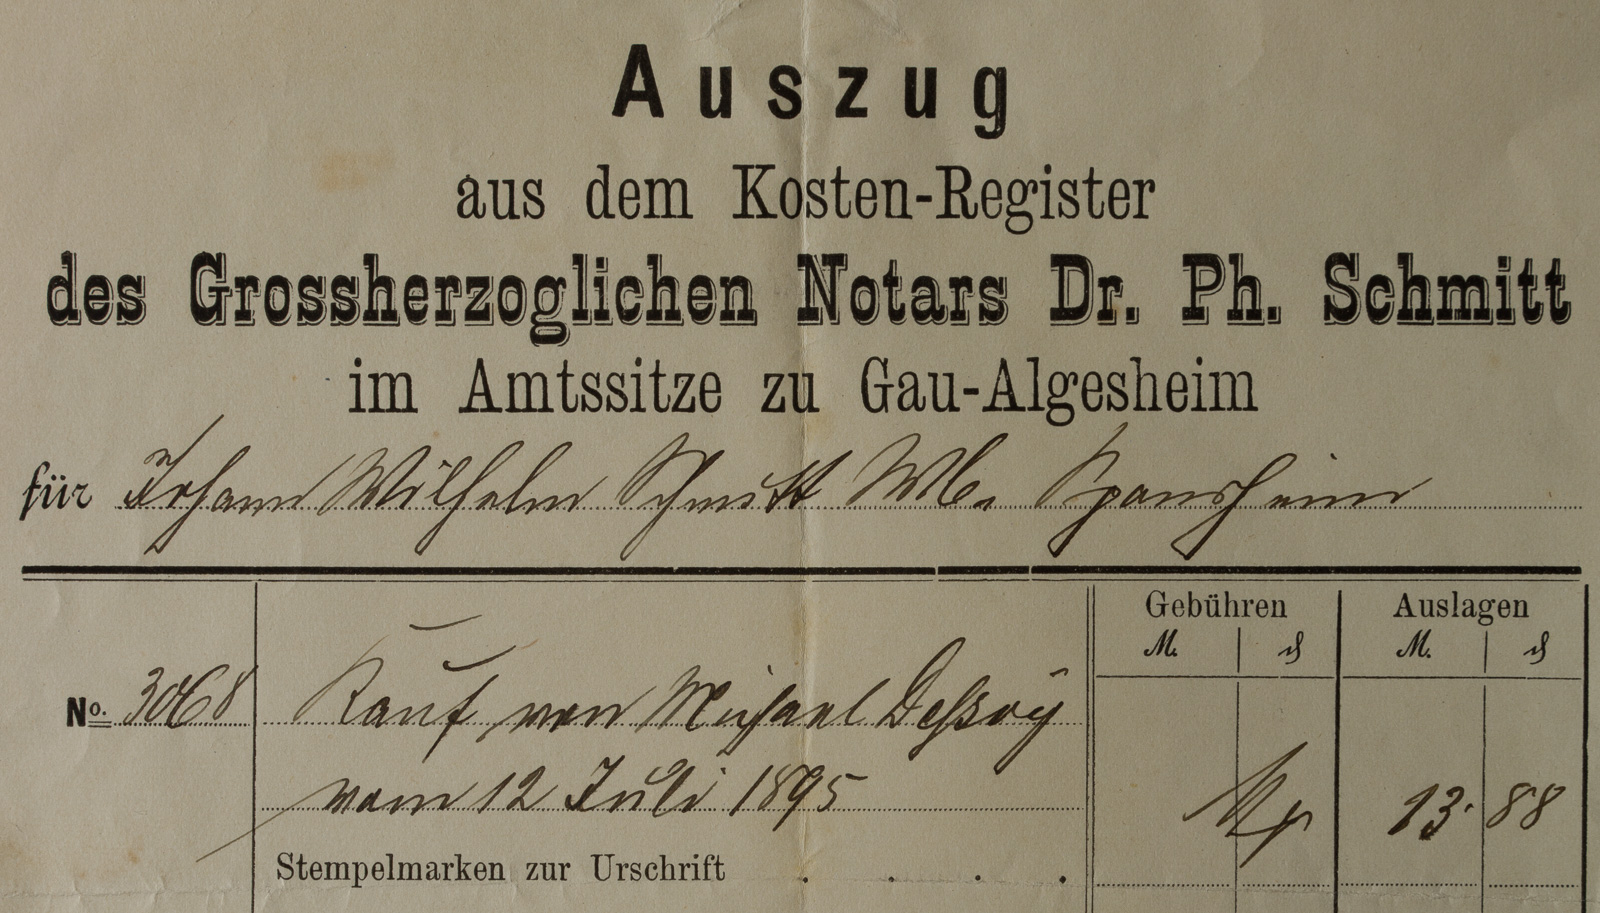 Auszug
aus dem Kosten-Register
des Grossherzoglichen Notars Dr. Ph. Schmitt
im Amtssitze zu Gau-Algesheim
für Johann Wilhelm Schmitt Wb. Sponsheim
Gebühren Auslagen
M. ₰ M. ₰
No. 3068 Kauf von Michael Dessoÿ
vom 12 Juli 1895 13. 88
Stempelmarken zur Urschrift . . . .